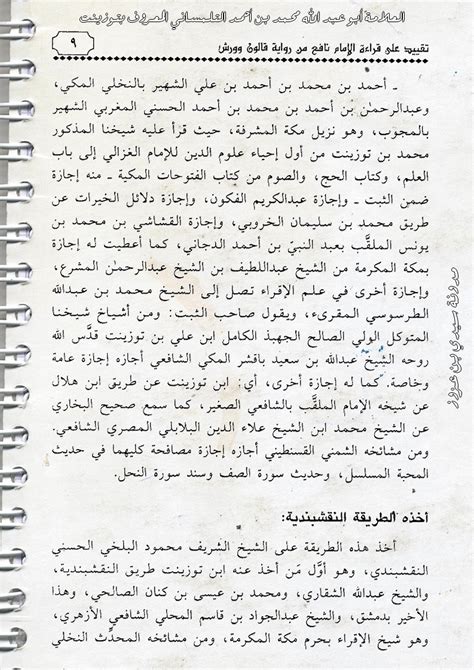 العلامة أبو عبد الله محمد بن أحمد التلمساني المعروف بتوزينت
تقييد على قراءة الإمام نافع من رواية قالون وورش
٩
ـ أحمد بن محمد بن أحمد بن علي الشهير بالنخلي المكي،
وعبدالرحمٰن بن أحمد بن محمد بن أحمد الحسني المغربي الشهير
بالمجوب، وهو نزيل مكة المشرفة، حيث قرأ عليه شيخنا المذكور
محمد بن توزينت من أول إحياء علوم الدين للإمام الغزالي إلى باب
العلم، وكتاب الحج، والصوم من كتاب الفتوحات المكية ـ منه إجازة
ضمن الثبت ـ وإجازة عبدالكريم الفكون، وإجازة دلائل الخيرات عن
طريق محمد بن سليمان الخروبي، وإجازة القشاشي بن محمد بن
يونس الملقَّب بعبد النبيّ بن أحمد الدجاني، كما أعطيت له إجازة
بمكة المكرمة من الشيخ عبداللطيف بن الشيخ عبدالرحمٰن المشرع،
وإجازة أخرى في علم الإقراء تصل إلى الشيخ محمد بن عبدالله
الطرسوسي المقرىء، ويقول صاحب الثبت: ومن أشياخ شيخنا
المتوكل الولي الصالح الجهبذ الكامل ابن علي بن توزينت قدَّس الله
روحه الشيخ عبدالله بن سعيد باقشر المكي الشافعي أجازه إجازة عامة
وخاصة. كما له إجازة أخرى، أي: ابن توزينت عن طريق ابن هلال
عن شيخه الإمام الملقَّب بالشافعي الصغير، كما سمع صحيح البخاري
عن الشيخ محمد ابن الشيخ علاء الدين البلابلي المصري الشافعي.
ومن مشائخه الشمني القسنطيني أجازه إجازة مصافحة كليهما في حديث
المحبة المسلسل، وحديث سورة الصف وسند سورة النحل.
أخذه الطريقة النقشبندية:
أخذ هذه الطريقة على الشيخ الشريف محمود البلخي الحسني
النقشبندي، وهو أوَّل من أخذ عنه ابن توزينت طريق النقشبندية،
والشيخ عبدالله الشقاري، ومحمد بن عيسى بن كنان الصالحي، وهذا
الأخير بدمشق، والشيخ عبدالجواد بن قاسم المحلي الشافعي الأزهري،
وهو شيخ الإقراء بحرم مكة المكرمة، ومن مشائخه المحدِّث النخلي